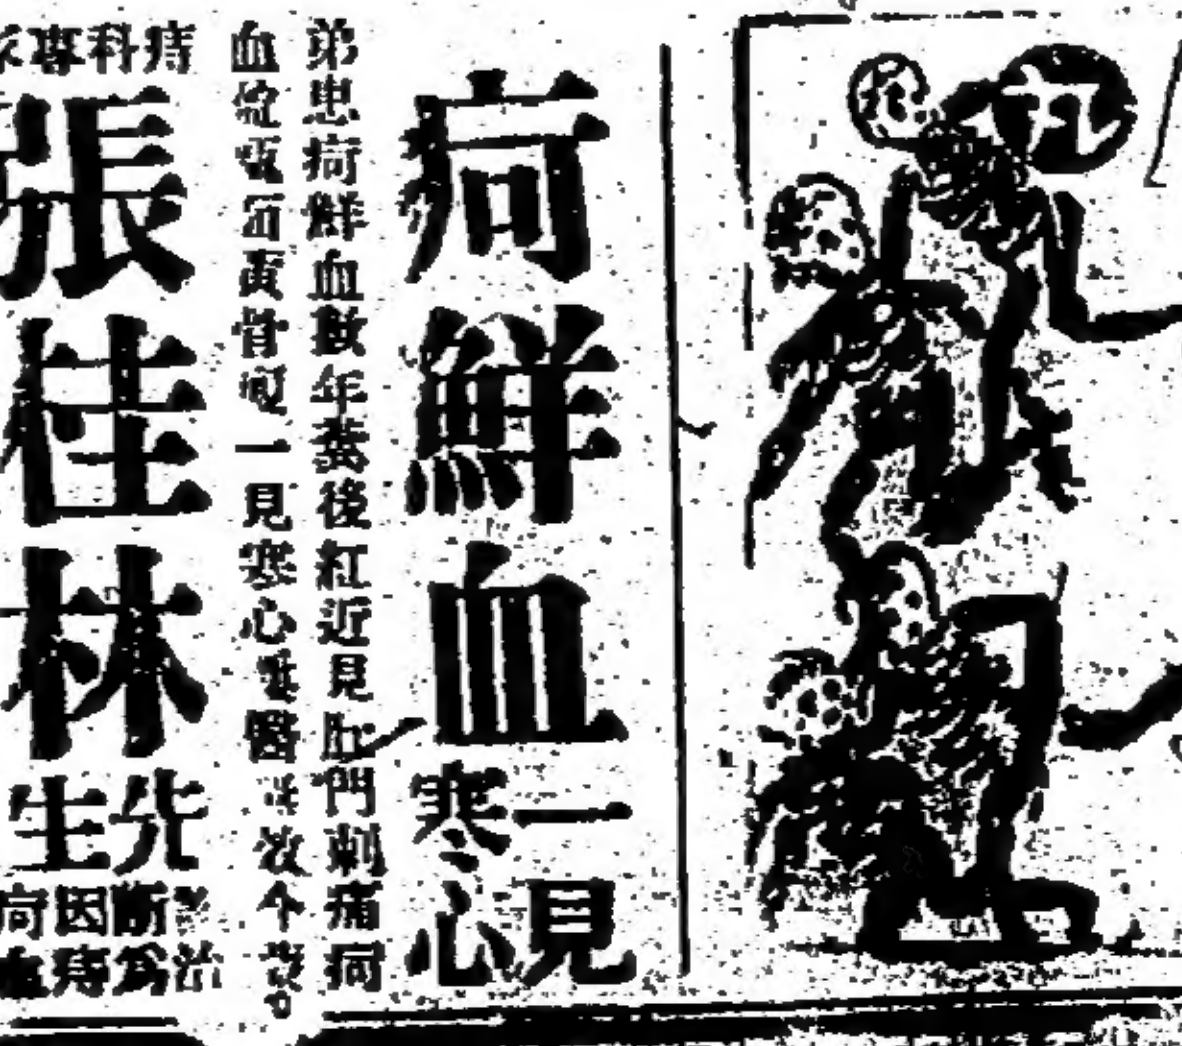 丸
疴鮮血
一見
寒心
弟患疴鮮血數年糞後紅近見肛門刺痛疴
血面黃骨瘦一見寒心醫效今蒙
痔科專家
張桂林
先生
治
斷為
因痔
疴血